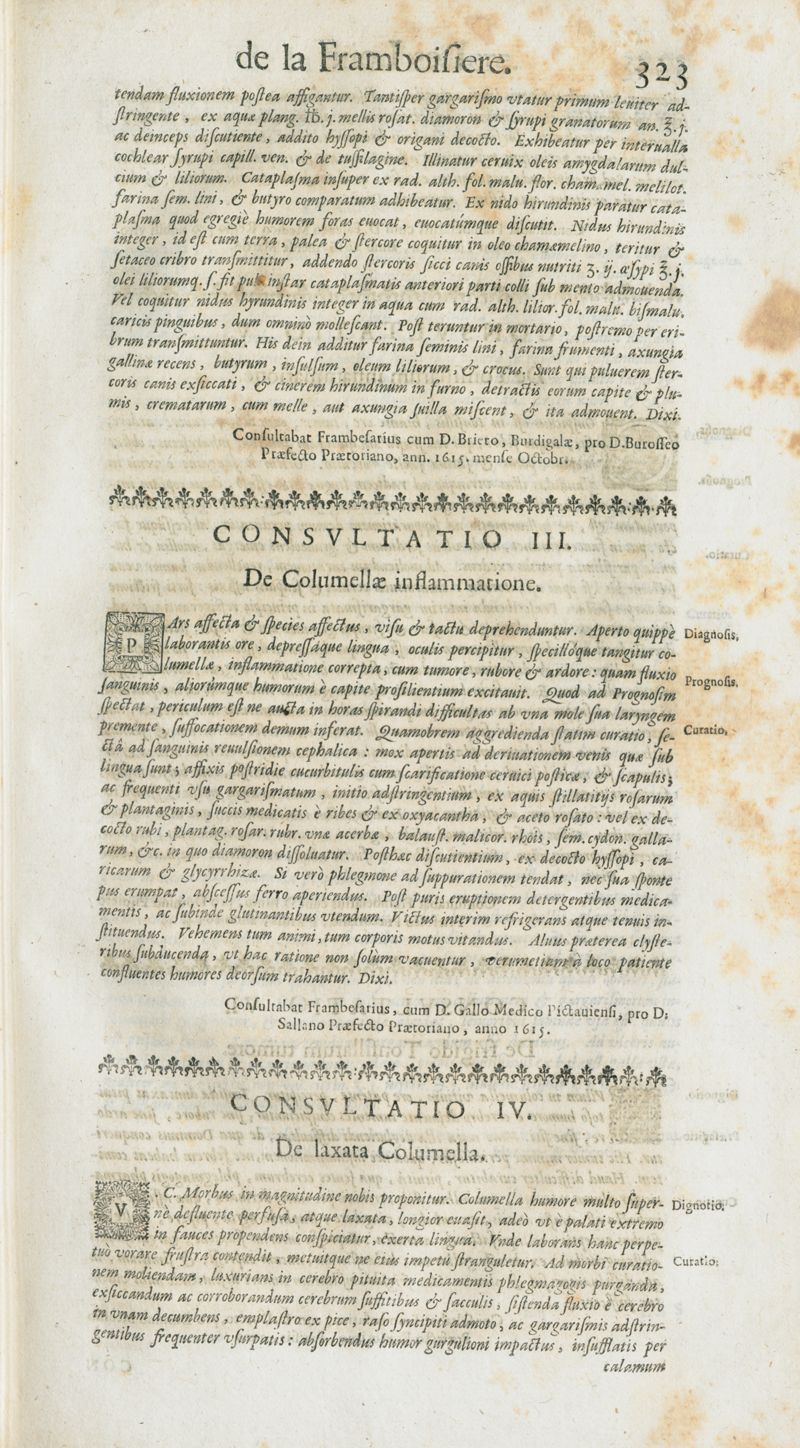 de la Framboiſiere.
323
tendam fluxionem poſtea affigantur. Tantiſper gargariſmo vtatur primum leuiter ad-
ſtringente, ex aquæ plang. ℔. j. mellis roſat. diamoron & ſyrupi granatorum an. ℥. j.
ac deinceps diſcutiente, addito hyſſopi & origani decocto. Exhibeatur per interualla
cochlear ſyrupi capill. ven. & de tuſſilagine. Illinatur ceruix oleis amygdalarum dul-
cium & liliorum. Cataplaſma inſuper ex rad. alth. fol. malu. flor. chamæmel. melilot.
farina ſem. lini, & butyro comparatum adhibeatur. Ex nido hirundinis paratur cata-
plaſma quod egregiè humorem foras euocat, euocatúmque diſcutit. Nidus hirundinis
integer, id eſt cum terra, palea & ſtercore coquitur in oleo chamæmelino, teritur &
ſetaceo cribro tranſmittitur, addendo ſtercoris ſicci canis oſſibus nutriti ʒ. ij. œſypi ℥. j.
olei liliorumq. ſ. fit puls inſtar cataplaſmatis anteriori parti colli ſub mento admouenda.
Vel coquitur nidus hyrundinis integer in aqua cum rad. alth. lilior. fol. malu. biſmalu.
caricis pinguibus, dum omninò molleſcant. Poſt teruntur in mortario, poſtremo per cri-
brum tranſmittuntur. His dein additur farina ſeminis lini, farina frumenti, axungia
gallinæ recens, butyrum, inſulſum, oleum liliorum, & crocus. Sunt qui puluerem ſter-
coris canis exſiccati, & cinerem hirundinum in furno, detractis eorum capite & plu-
mis, crematarum, cum melle, aut axungia ſuilla miſcent, & ita admouent. Dixi.
Conſultabat Frambeſarius cum D. Brieto, Burdigalæ, pro D. Buroſſeo
Præfecto Prætoriano, ann. 1615. menſe Octobr.
CONSVLTATIO III.
De Columellæ inflammatione.
PArs affecta & ſpecies affectus, viſu & tactu deprehenduntur. Aperto quippè
laborantis ore, depreſſáque lingua, oculis percipitur, ſpecillóque tangitur co-
lumellæ, inflammatione correpta, cum tumore, rubore & ardore: quam fluxio
ſanguinis, aliorúmque humorum è capite proſilientium excitauit. Quod ad Prognoſim
ſpectat, periculum eſt ne aucta in horas ſpirandi difficultas ab vna mole ſua laryngem
premente, ſuffocationem demum inferat. Quamobrem aggredienda ſtatim curatio, ſe-
ctâ ad ſanguinis reuulſionem cephalica: mox apertis ad deriuationem venis quæ ſub
lingua ſunt; affixis poſtridie cucurbitulis cum ſcarificatione ceruici poſticæ, & ſcapulis;
ac frequenti vſu gargariſmatum, initio adſtringentium, ex aquis ſtillatitijs roſarum
& plantaginis, ſuccis medicatis è ribes & ex oxyacantha, & aceto roſato: vel ex de-
cocto rubi, plantag. roſar. rubr. vuæ acerbæ, balauſt. malicor. rhois, ſem. cydon. galla-
rum, &c. in quo diamoron diſſoluatur. Poſthæc diſcutientium, ex decocto hyſſopi, ca-
ricarum & glycyrrhizæ. Si verò phlegmone ad ſuppurationem tendat, nec ſua ſponte
pus erumpat, abſceſſus ferro aperiendus. Poſt puris eruptionem detergentibus medica-
mentis, ac ſubinde glutinantibus vtendum. Victus interim refrigerans atque tenuis in-
ſtituendus. Vehemens tum animi, tum corporis motus vitandus. Aluus præterea clyſte-
ribus ſubducenda, vt hac ratione non ſolùm vacuentur, verumetiam à loco patiente
confluentes humores deorſum trahantur. Dixi.
Diagnoſis.
Prognoſis.
Curatio.
Conſultabat Frambeſarius, cum D. Gallo Medico Pictauienſi, pro D.
Sallano Præfecto Prætoriano, anno 1615.
CONSVLTATIO IV.
De laxata Columella.
V. C. Morbus in magnitudine nobis proponitur. Columella humore multo ſuper-
ne defluente perfuſa, atque laxata, longior euaſit, adeò vt è palati extremo
in fauces propendens conſpiciatur, exerta lingua. Vnde laborans hanc perpe-
tuò vorare fruſtra contendit, metuitque ne eius impetu ſtranguletur. Ad morbi curatio-
nem moliendam, luxurians in cerebro pituita medicamentis phlegmagogis purganda,
exſiccandum ac corroborandum cerebrum ſuffitibus & ſacculis, ſiſtenda fluxio è cerebro
in vuam decumbens, emplaſtro ex pice, raſo ſyncipiti admoto, ac gargariſmis adſtrin-
gentibus frequenter vſurpatis: abſorbendus humor gurgulioni impactus, inſufflatis per
calamum
Dignotio.
Curatio.